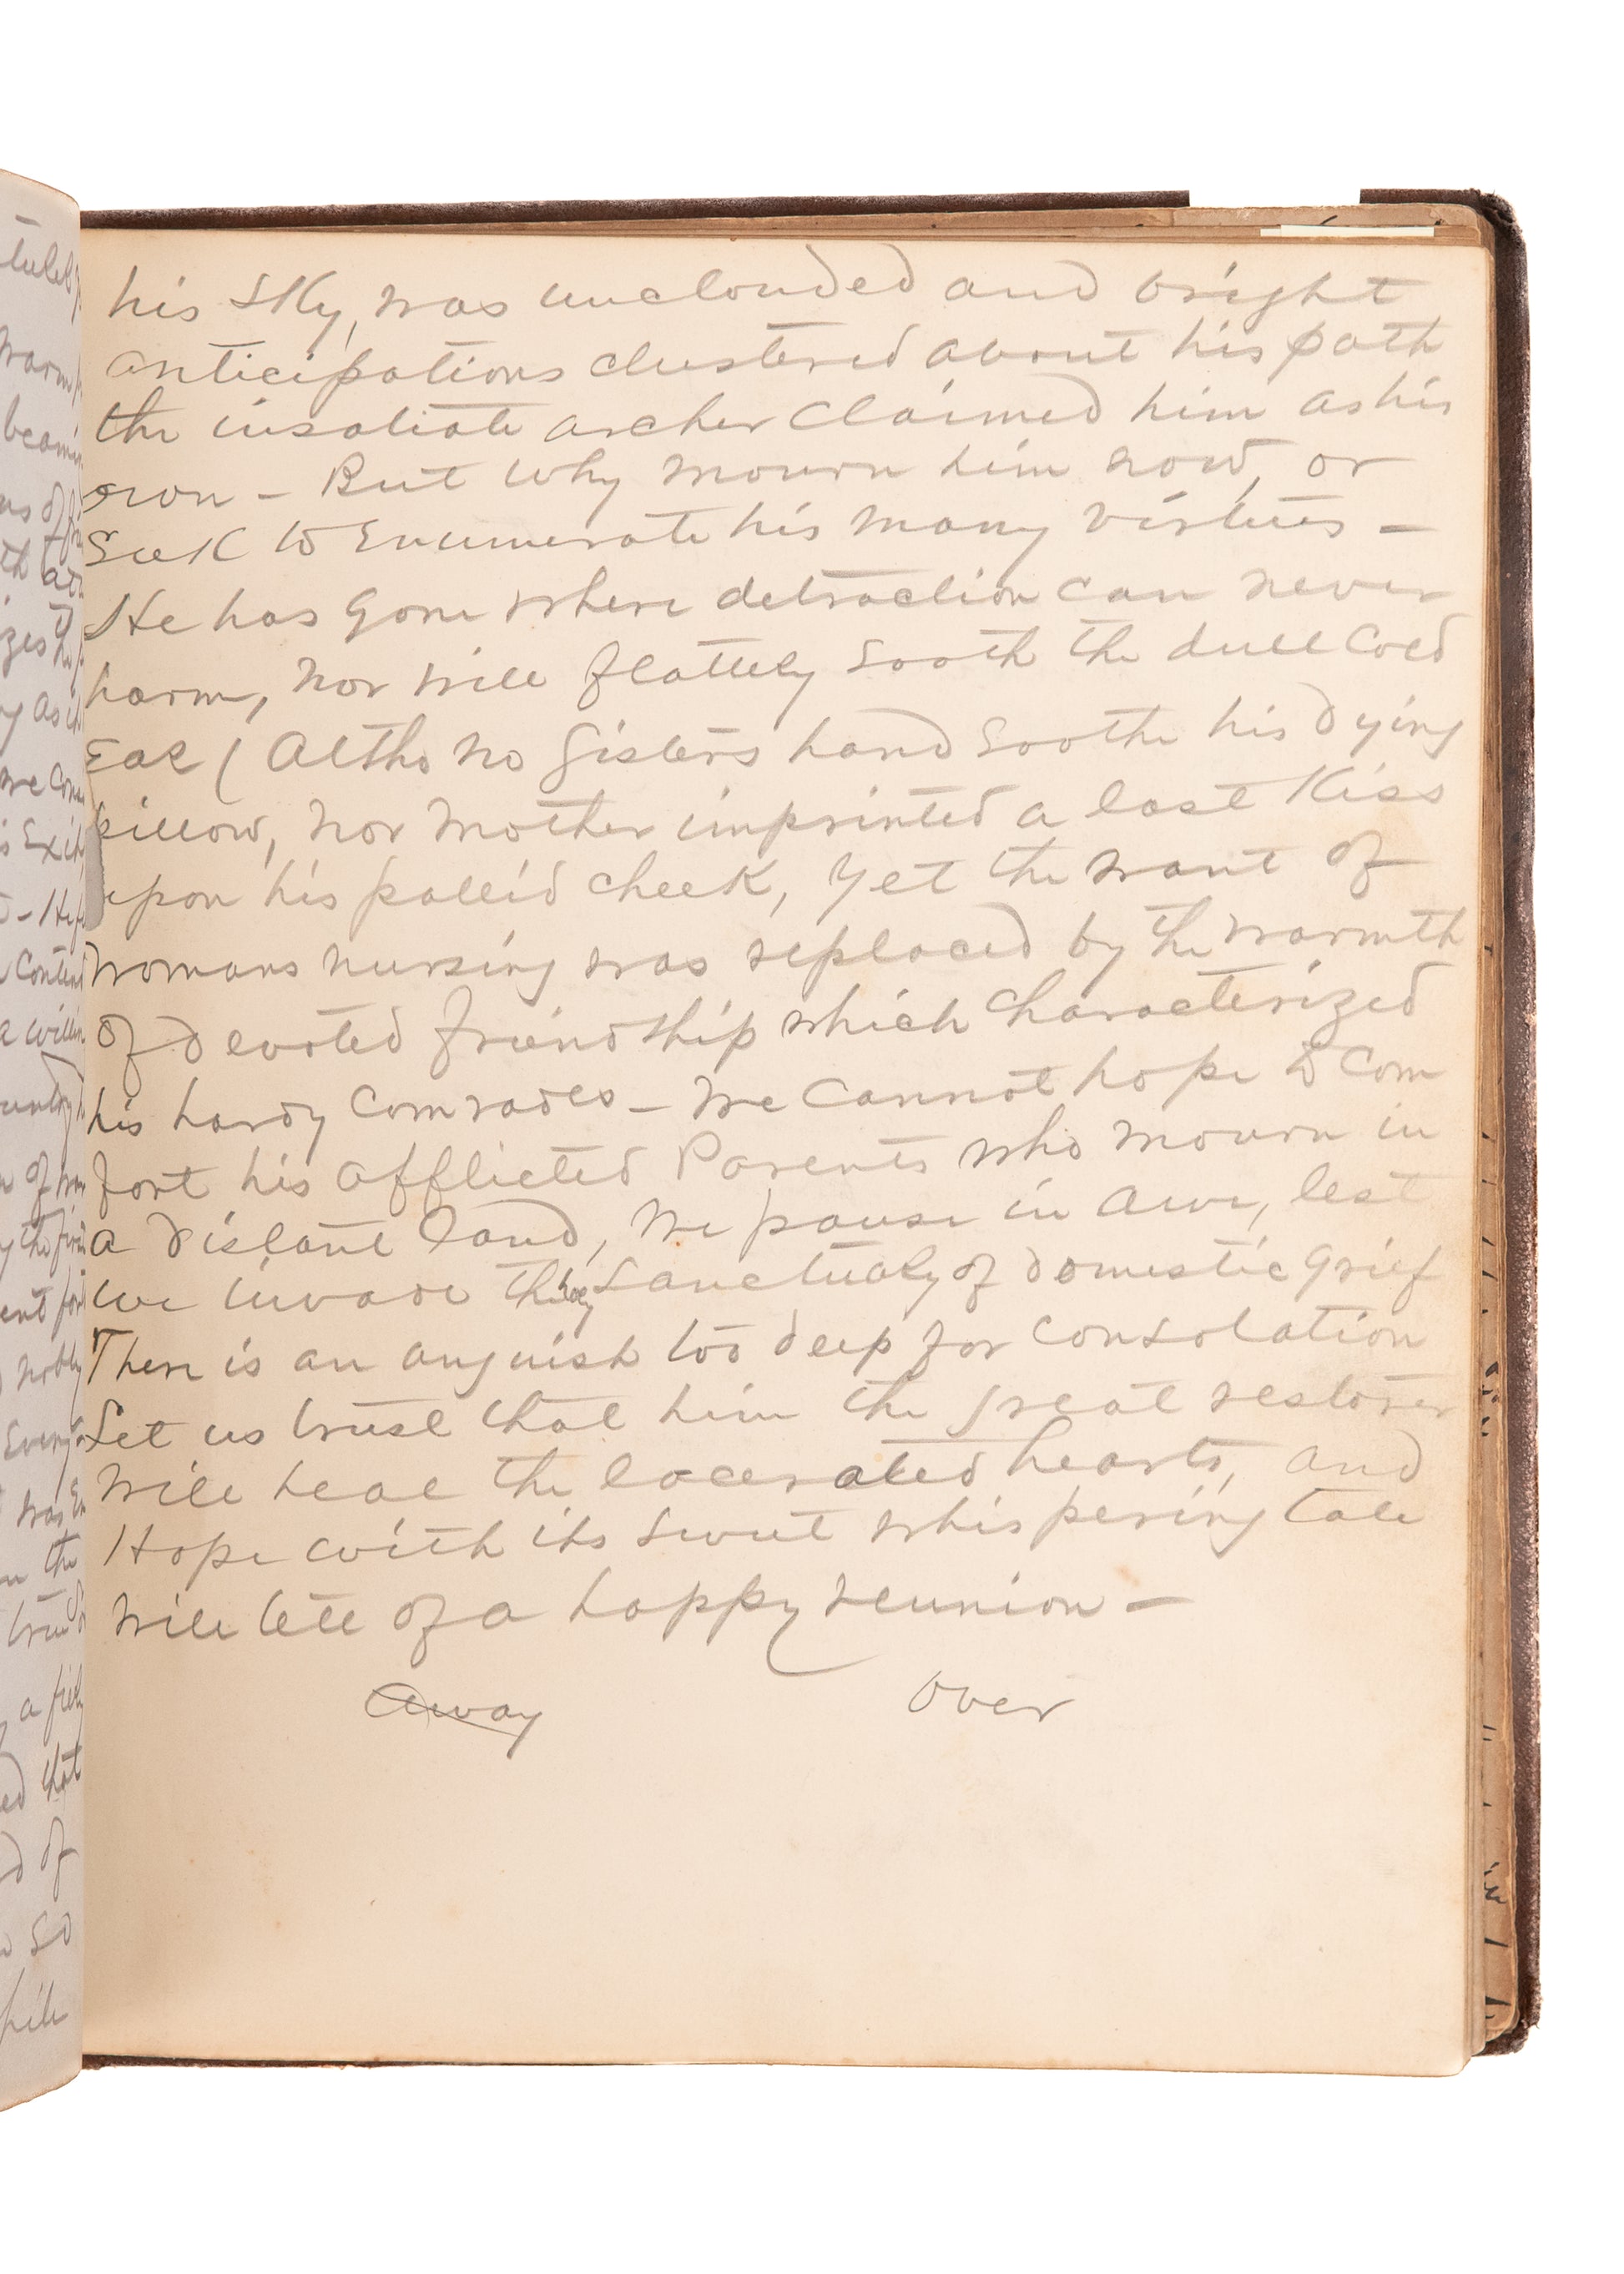 his sky, was unclouded and bright
anticipations clustered about his path
the insatiate archer claimed him as his
own - But why mourn him now, or
seek to Enumerate his many virtues -
He has gone where detraction can never
harm, nor will flattery sooth the dull cold
Ear ( Altho no Sisters hand soothe his dying
pillow, nor Mother imprinted a last Kiss
upon his pallid cheek, yet the want of
womans nursing was replaced by the warmth
of devoted friendship which characterized
his hardy comrades - We cannot hope to com
fort his afflicted Parents who mourn in
a distant land, We pause in awe, lest
we invade the holy Sanctuary of domestic grief
There is an anguish too deep for consolation
Let us trust that him the great restorer
will heal the lacerated hearts, and
Hope with its sweet whispering tale
will tell of a happy reunion -
Away over